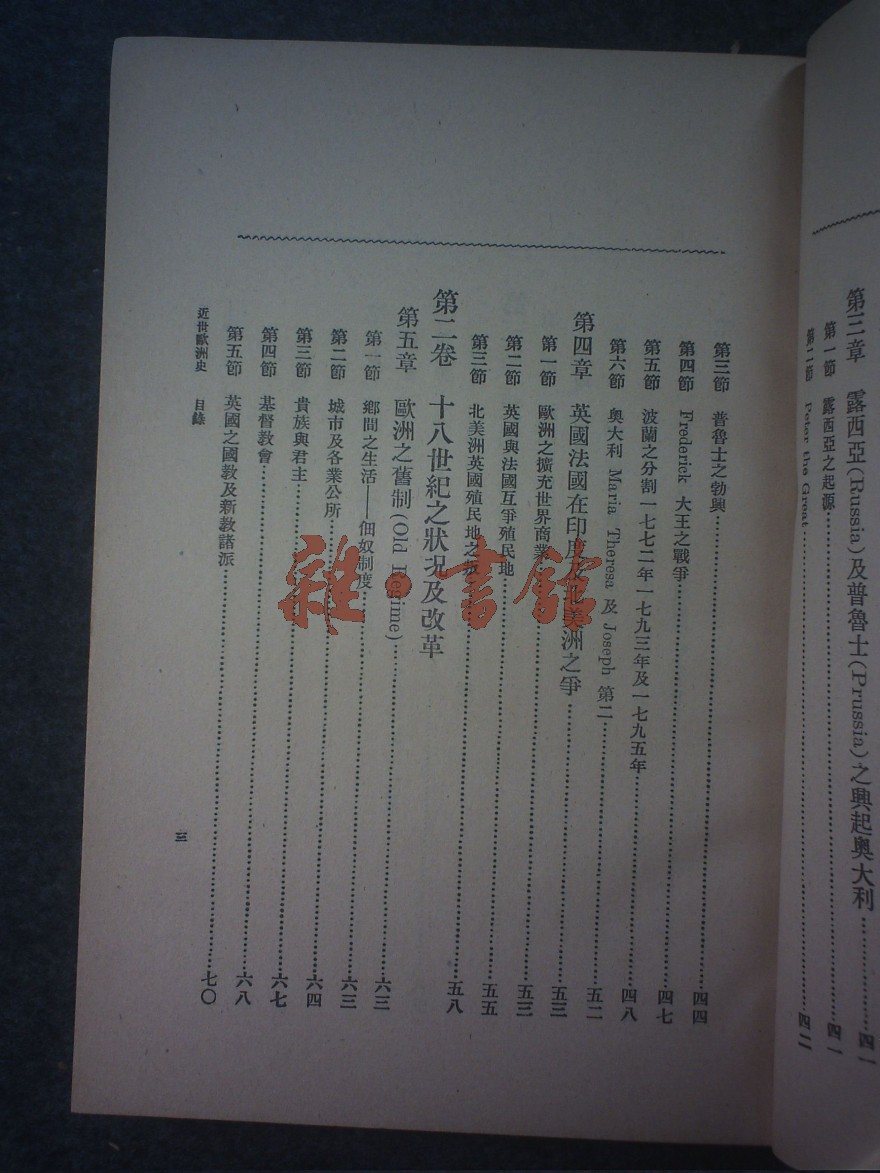 第三章 露西亞(Russia)及普魯士(Prussia)之興起奧大利……四一
第一節 露西亞之起源……四一
第二節 Peter the Great……四二
第三節 普魯士之勃興……四四
第四節 Frederick 大王之戰爭……四七
第五節 波蘭之分割一七七二年一七九三年及一七九五年……四八
第六節 奧大利 Maria Theresa 及 Joseph 第二……五二
第四章 英國法國在印度及北美洲之爭……五三
第一節 歐洲之擴充世界商業……五三
第二節 英國與法國互爭殖民地……五五
第三節 北美洲英國殖民地之叛……五八
第二卷 十八世紀之狀況及改革
第五章 歐洲之舊制(Old Regime)……六三
第一節 鄉間之生活——佃奴制度……六三
第二節 城市及各業公所……六四
第三節 貴族與君主……六七
第四節 基督教會……六八
第五節 英國之國教及新教諸派……七〇
近世歐洲史 目錄 三
雜·書館